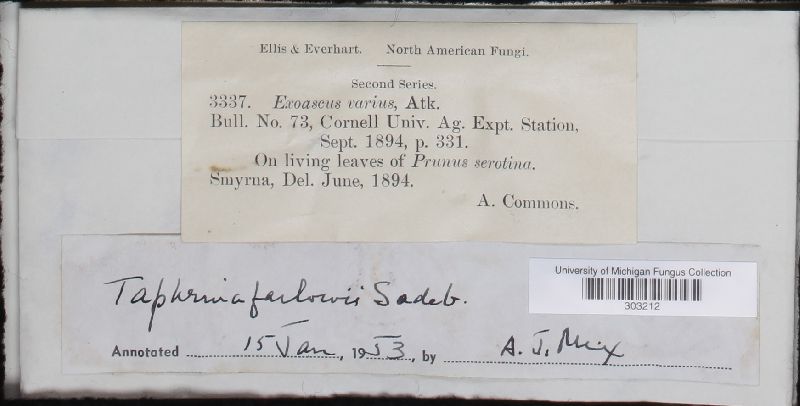 Ellis & Everhart. North American Fungi.
Second Series.
3337. Exoascus varius, Atk.
Bull. No. 73, Cornell Univ. Ag. Expt. Station,
Sept. 1894, p. 331.
On living leaves of Prunus serotina.
Smyrna, Del. June, 1894.
A. Commons.
University of Michigan Fungus Collection
303212
Taphrina farlowii Sadeb.
Annotated 15 Jan, 1953, by A. J. Mix